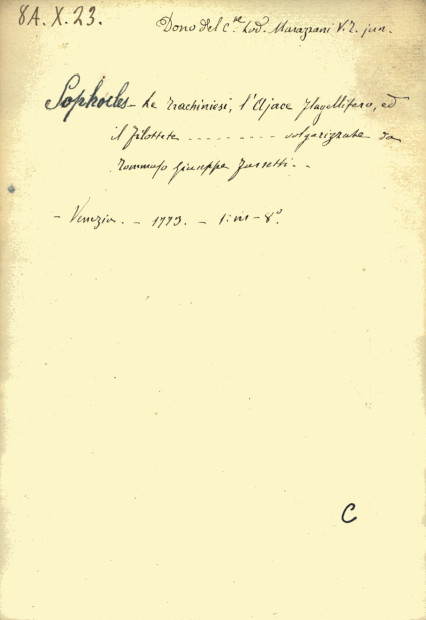 8A.X.23.
Dono del C.te Lod. Marazzani V. T. jun.
Sophocles - Le Trachiniesi, l'Ajace Flagellifero, ed
il Filottete - - - - - - - - volgarizzate da
Tommaso Giuseppe Farsetti. - -
- Venezia. - 1773. - 1: in - 8º.
C